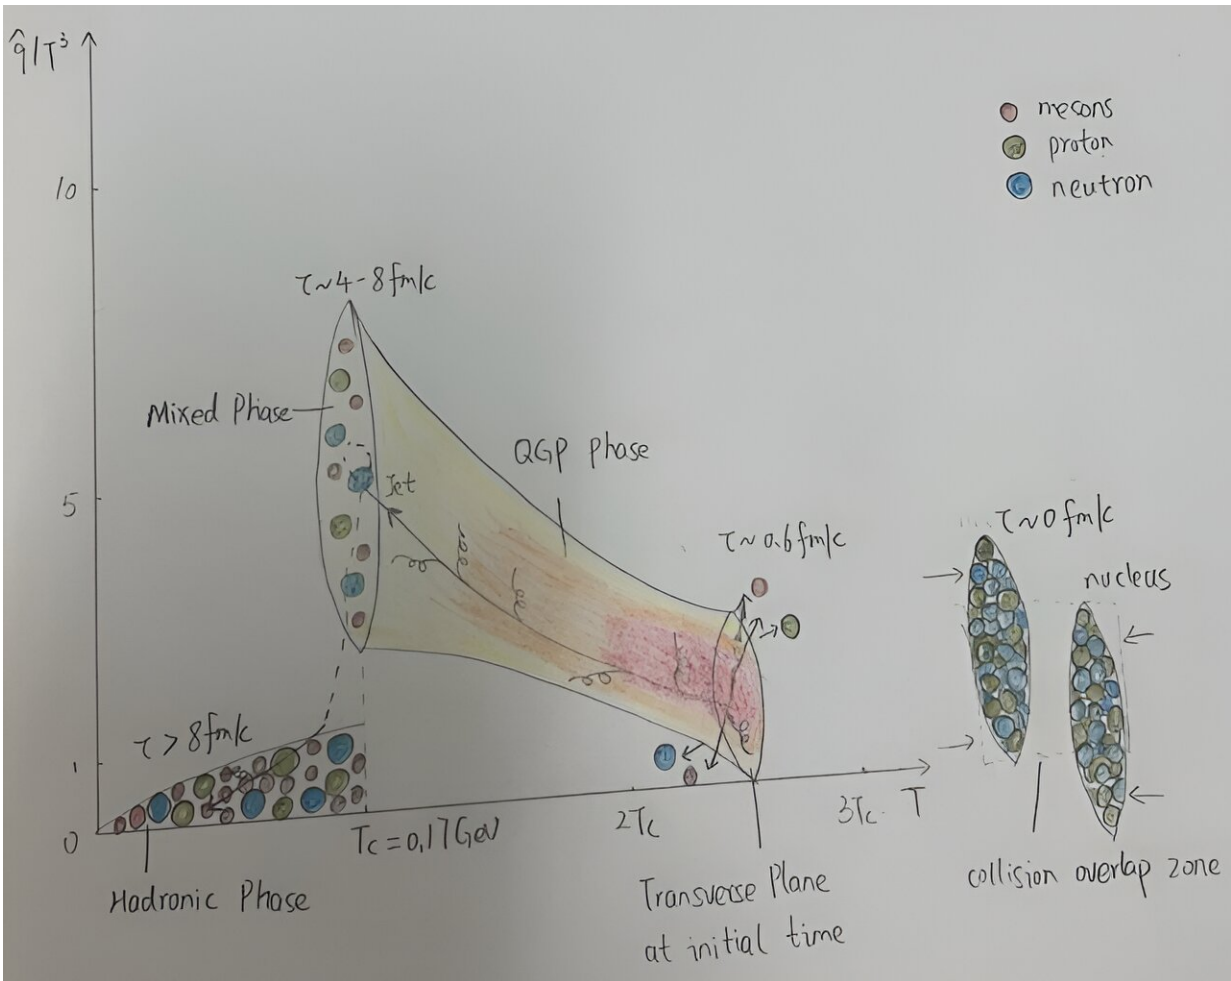 q̂/T³
mesons
proton
neutron
10
τ~4-8fm/c
Mixed Phase
QGP phase
Jet
5
τ~0.6fm/c
τ~0fm/c
nucleus
τ>8fm/c
1
0
Tc=0.17GeV
2Tc
3Tc
T
Hadronic Phase
Transverse Plane
at initial time
collision overlap zone